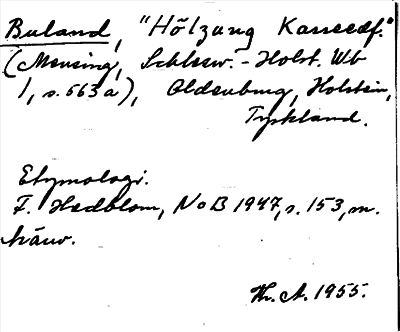 Buland, "Hölzung Kasseedf."
(Mensing, Schlesw.-Holst. Wb
1, s. 563 a), Oldenburg, Holstein,
Tyskland.
Etymologi.
F. Hedblom, NoB 1947, s. 153, m.
hänv.
Hr. A. 1955.